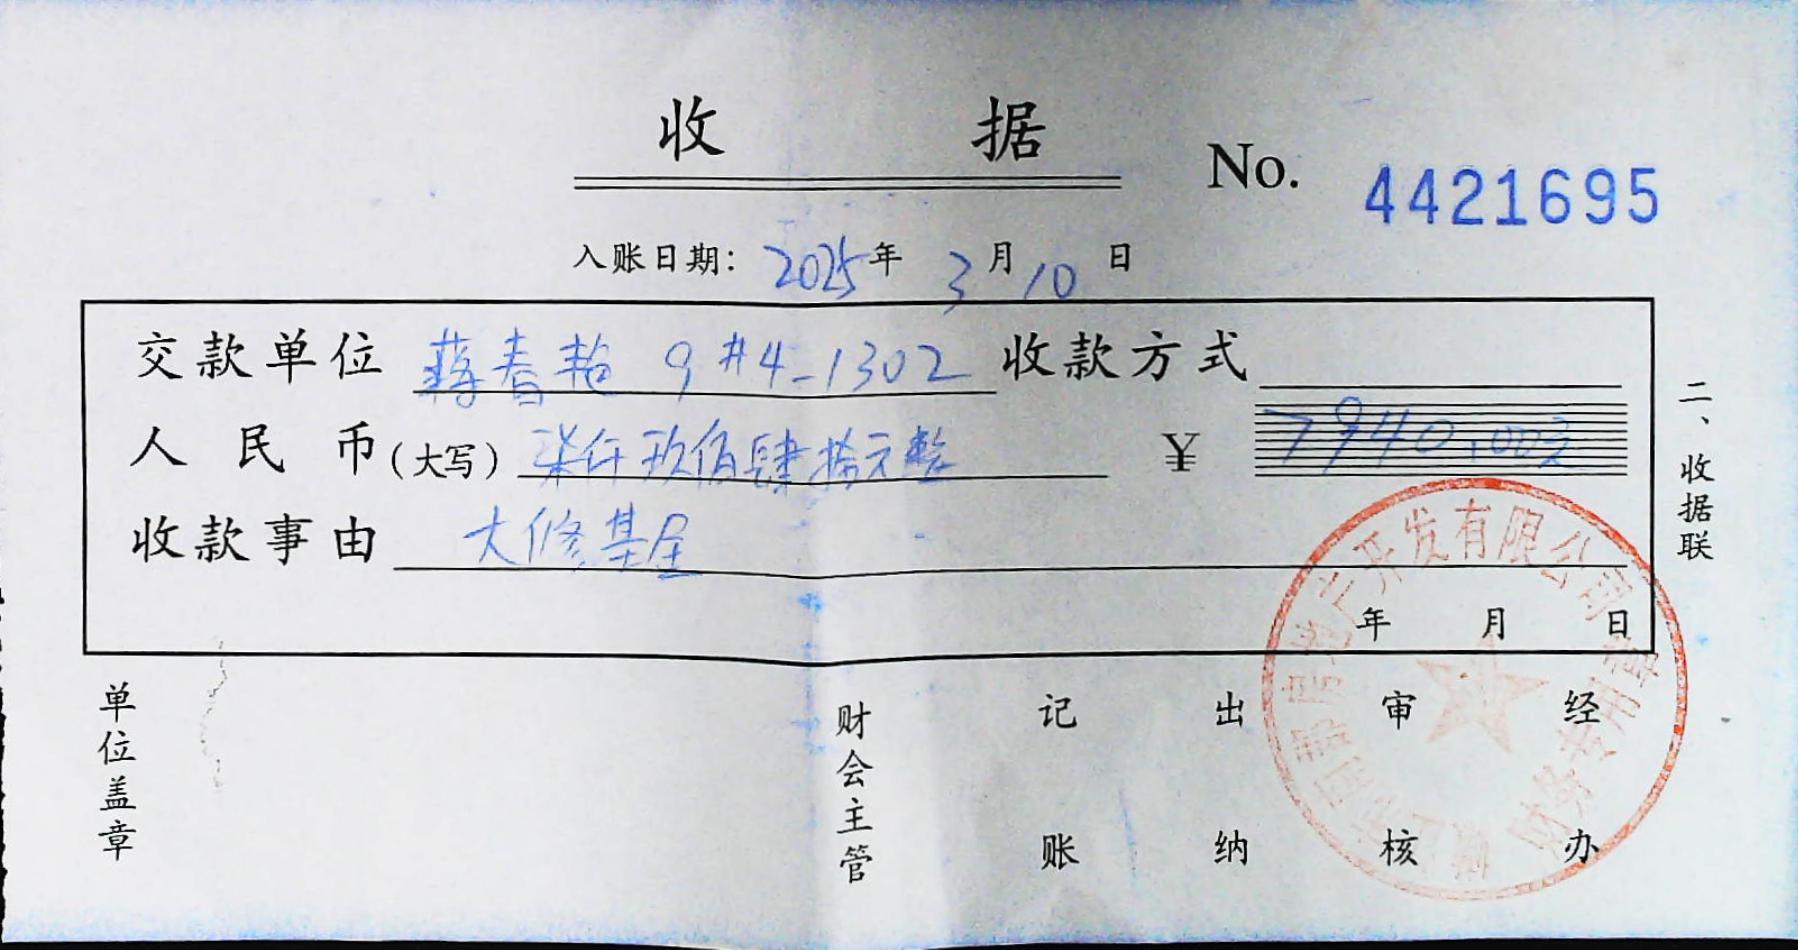 收 据
No. 4421695
入账日期: 2025年 3月10日
交款单位 蒋春艳 9#4-1302 收款方式
人民币(大写) 柒仟玖佰肆拾元整 ¥ 7940.00元
收款事由 大修基金
年 月 日
二、收据联
单位盖章
财会主管
记账
出纳
审核
经办
房地产开发有限公司
财务专用章